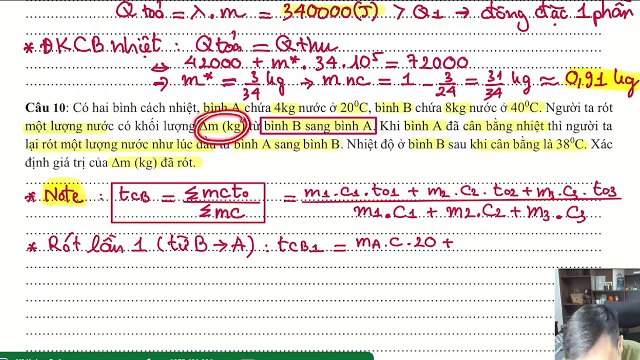 Q toả = λ.m = 340000(J) > Q1 → đông đặc 1 phần
* ĐKCB nhiệt : Q toả = Q thu
⇔ 42000 + m*.34.10⁵ = 72000
⇒ m* = 3/34 kg → m nc = 1 - 3/24 = 31/34 kg ≈ 0,91 kg
Câu 10: Có hai bình cách nhiệt, bình A chứa 4kg nước ở 20⁰C, bình B chứa 8kg nước ở 40⁰C. Người ta rót
một lượng nước có khối lượng Δm (kg) từ bình B sang bình A. Khi bình A đã cân bằng nhiệt thì người ta
lại rót một lượng nước như lúc đầu từ bình A sang bình B. Nhiệt độ ở bình B sau khi cân bằng là 38⁰C. Xác
định giá trị của Δm (kg) đã rót.
* Note : tCB = Σmct₀/Σmc = (m1.C1.t01 + m2.C2.t02 + m3.C3.t03)/(m1.C1 + m2.C2 + m3.C3)
* Rót lần 1 (từ B → A) : tCB1 = mA.C.20 +